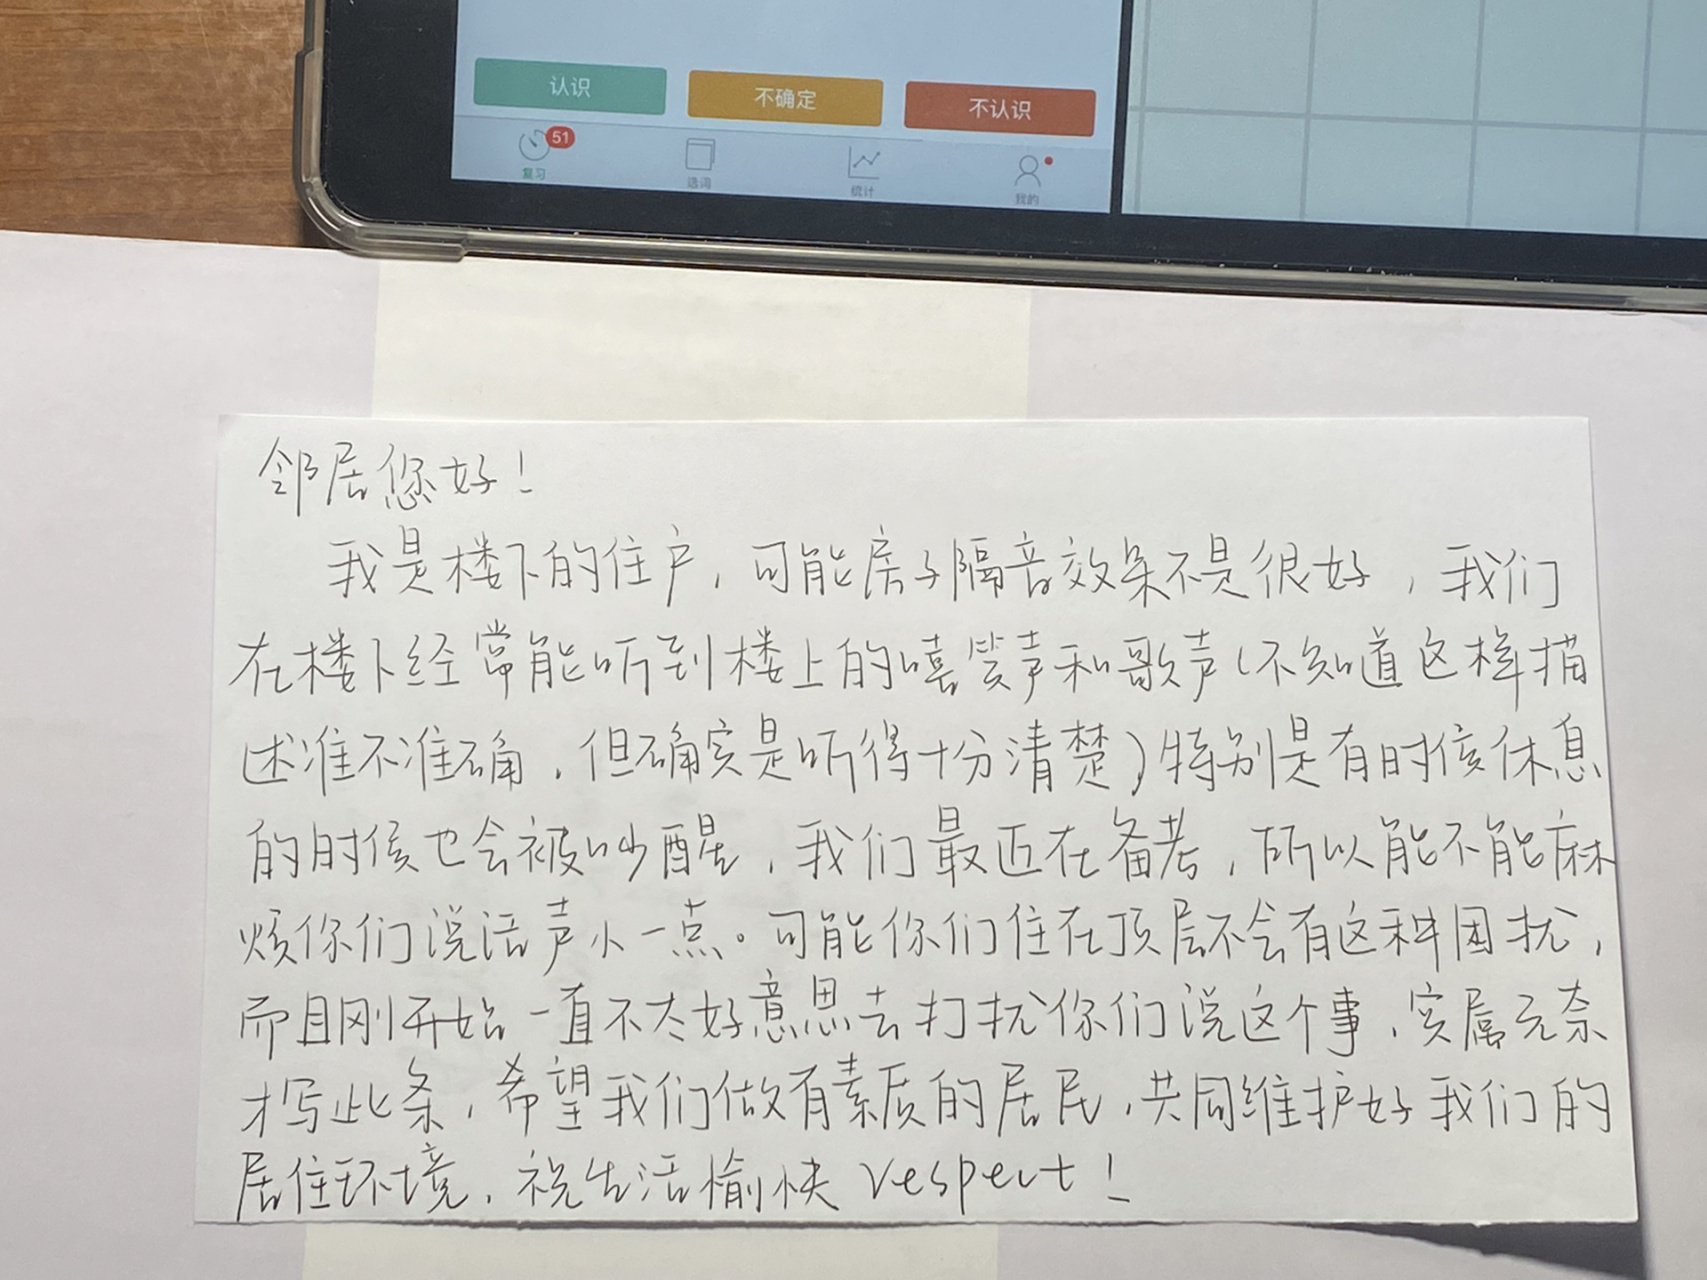 认识 不确定 不认识
51
复习 选词 统计 我的
邻居您好！
我是楼下的住户，可能房子隔音效果不是很好，我们
在楼下经常能听到楼上的嘻笑声和歌声（不知道这样描
述准不准确，但确实是听得十分清楚）特别是有时候休息
的时候也会被吵醒，我们最近在备考，所以能不能麻
烦你们说话声小一点。可能你们住在顶层不会有这种困扰，
而且刚开始一直不太好意思去打扰你们说这个事，实属无奈
才写此条，希望我们做有素质的居民，共同维护好我们的
居住环境，祝生活愉快 respect！